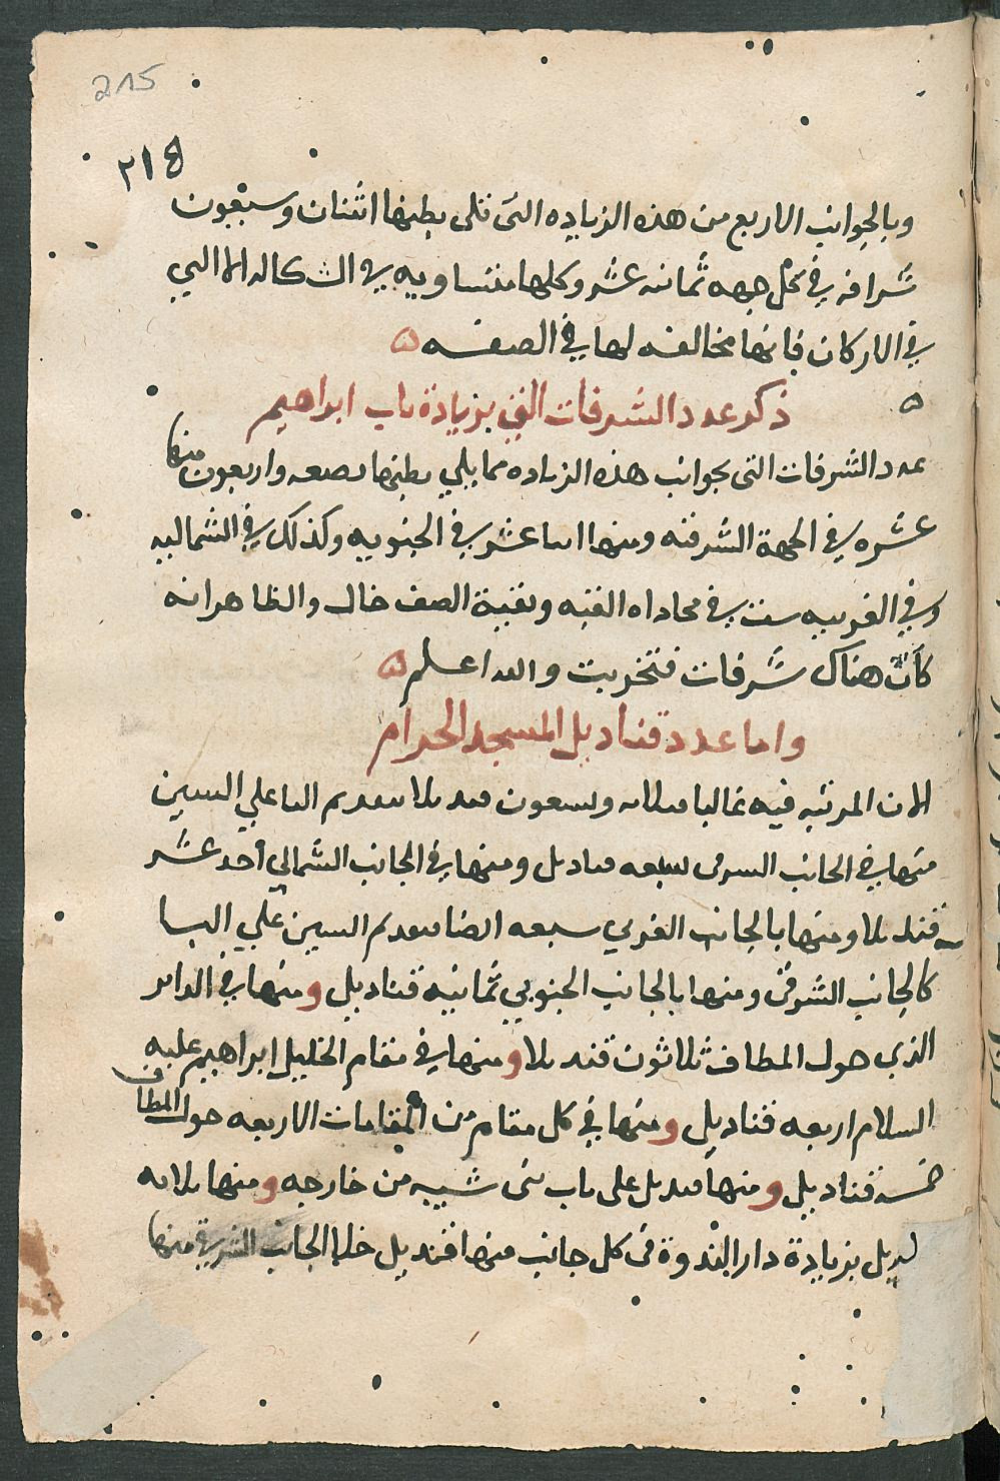 215
٢١٤
وبالجوانب الاربع من هذه الزياده التى تلى بطنها اثنتان وسبعون
شرافه في كل جهه ثمانيه عشر وكلها متساويه في الشكاله الا التي
في الاركان فانها مخالفه لها في الصفه ه
ذكر عدد الشرفات التي بزيادة باب ابراهيم
عدد الشرفات التى بجوانب هذه الزياده مما يلي بطنها بضعه واربعون منها
عشره في الجهة الشرقيه ومنها اثنا عشر في الجنوبيه وكذلك في الشماليه
وفي الغربيه ست في محاذاه القبه وبقية الصف خال والظاهر انه
كانت هناك شرفات فتخربت والله اعلم ه
واما عدد قناديل المسجد الحرام
الان المرتبه فيه غالبا فثلاثه وتسعون قنديلا بتقديم التا علي السين
منها في الجانب الشرقى سبعه قناديل ومنها في الجانب الشمالي أحد عشر
قنديلا ومنها بالجانب الغربي سبعه ايضا بتقديم السين علي البا
كالجانب الشرقى ومنها بالجانب الجنوبي ثمانيه قناديل ومنها في الداير
الذي حول المطاف ثلاثون قنديلا ومنها في مقام الخليل ابراهيم عليه
السلام اربعه قناديل ومنها في كل مقام من المقامات الاربعه حول المطاف
خمسه قناديل ومنها قنديل على باب بنى شيبه من خارجه ومنها ثلاثه
بزيادة دار الندوة فى كل جانب منها قنديل خلا الجانب الشرقي منها